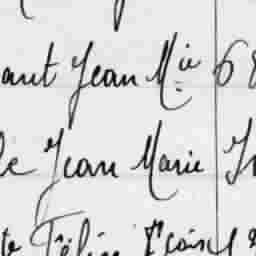 aut Jean Mie 6
le Jean Marie
te Félix Fçois